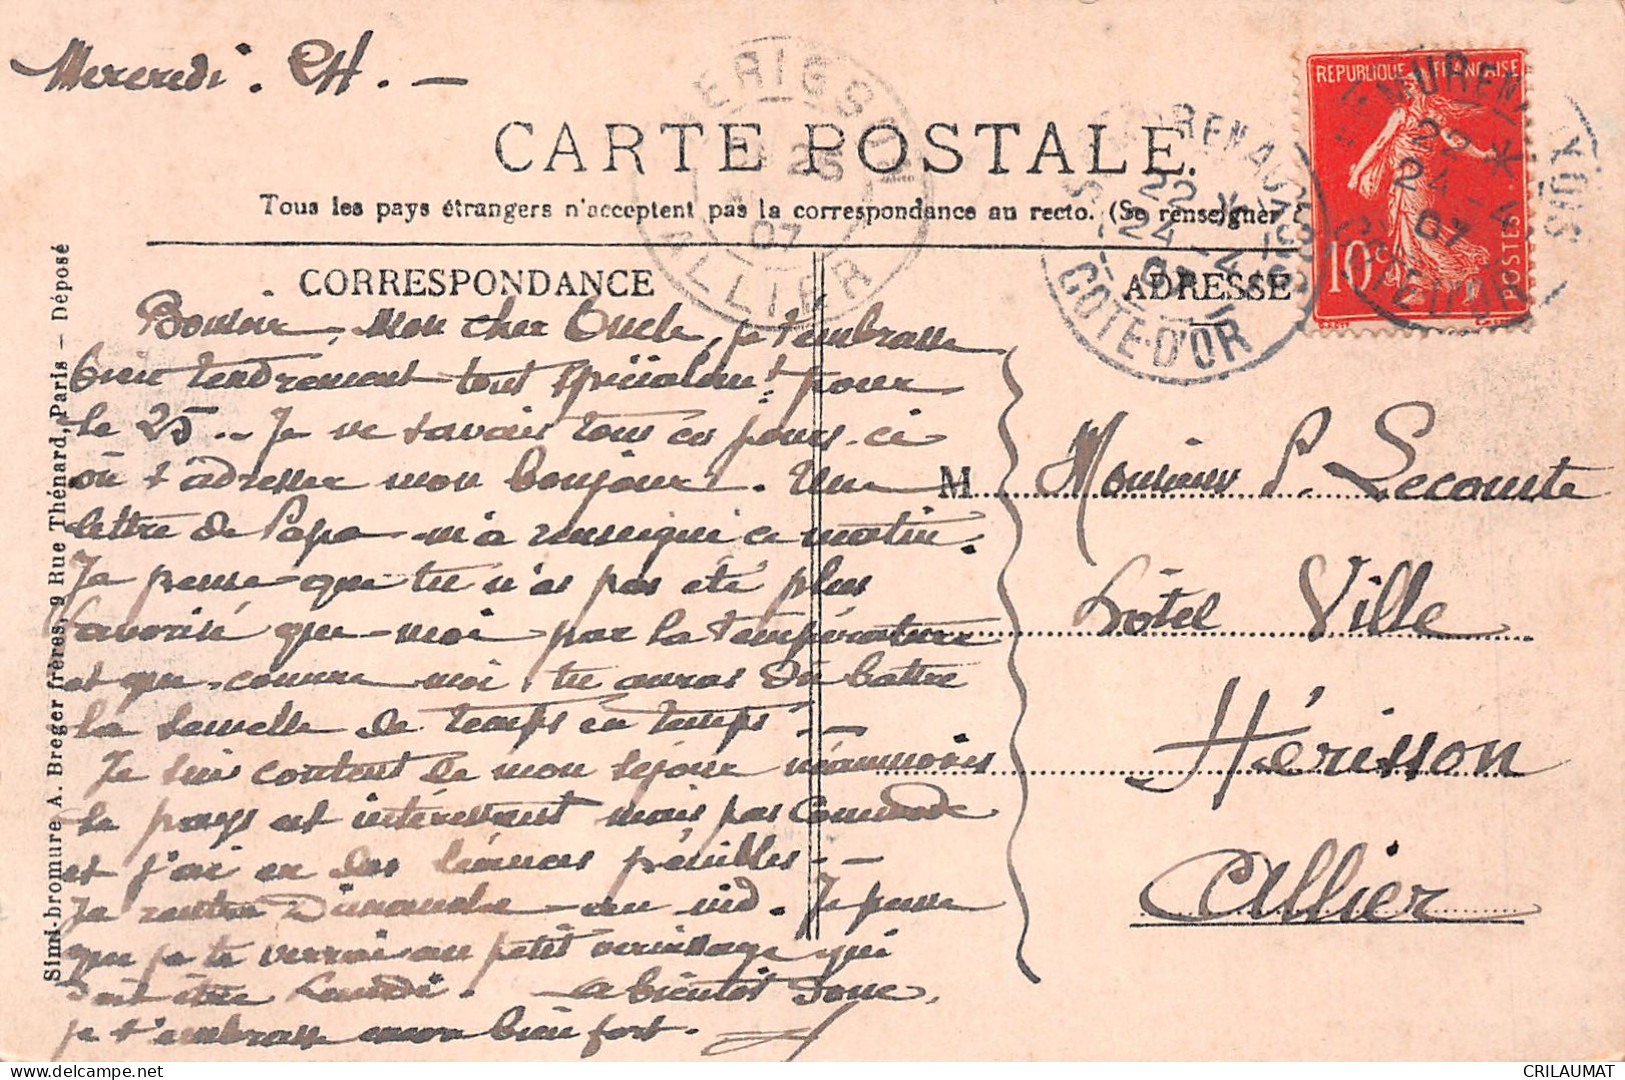 Mercredi. 24. —
CARTE POSTALE
Tous les pays étrangers n'acceptent pas la correspondance au recto. (Se renseigner
CORRESPONDANCE
ADRESSE
REPUBLIQUE FRANÇAISE
10 c
POSTES
SEMUR EN AUXOIS
22
24 - 4
07
COTE-D'OR
HERISSON
25
07
ALLIER
Bonsoir, mon cher Oncle, je t'embrasse
bien tendrement tout spécialem t pour
le 25.. Je ne savais tous ces jours-ci
où t'adresser mon bonjour. Une
lettre de Papa m'a renseigné ce matin.
Je pense que tu n'as pas été plus
favorisé que moi par la température
et que comme moi tu auras dû battre
la semelle de temps en temps —
Je suis content de mon séjour néanmoins
le pays est intéressant mais pas commode
et j'ai eu des séances pénibles - -
Je rentre Dimanche au nid. Je pense
que je te verrai au petit vernissage qui
doit être Lundi. — à bientôt donc,
je t'embrasse encore bien fort.
M Monsieur P. Lecomte
hôtel Ville
Hérisson
Allier
Simi-bromure A. Breger frères, 9 Rue Thénard, Paris — Déposé
CRILAUMAT